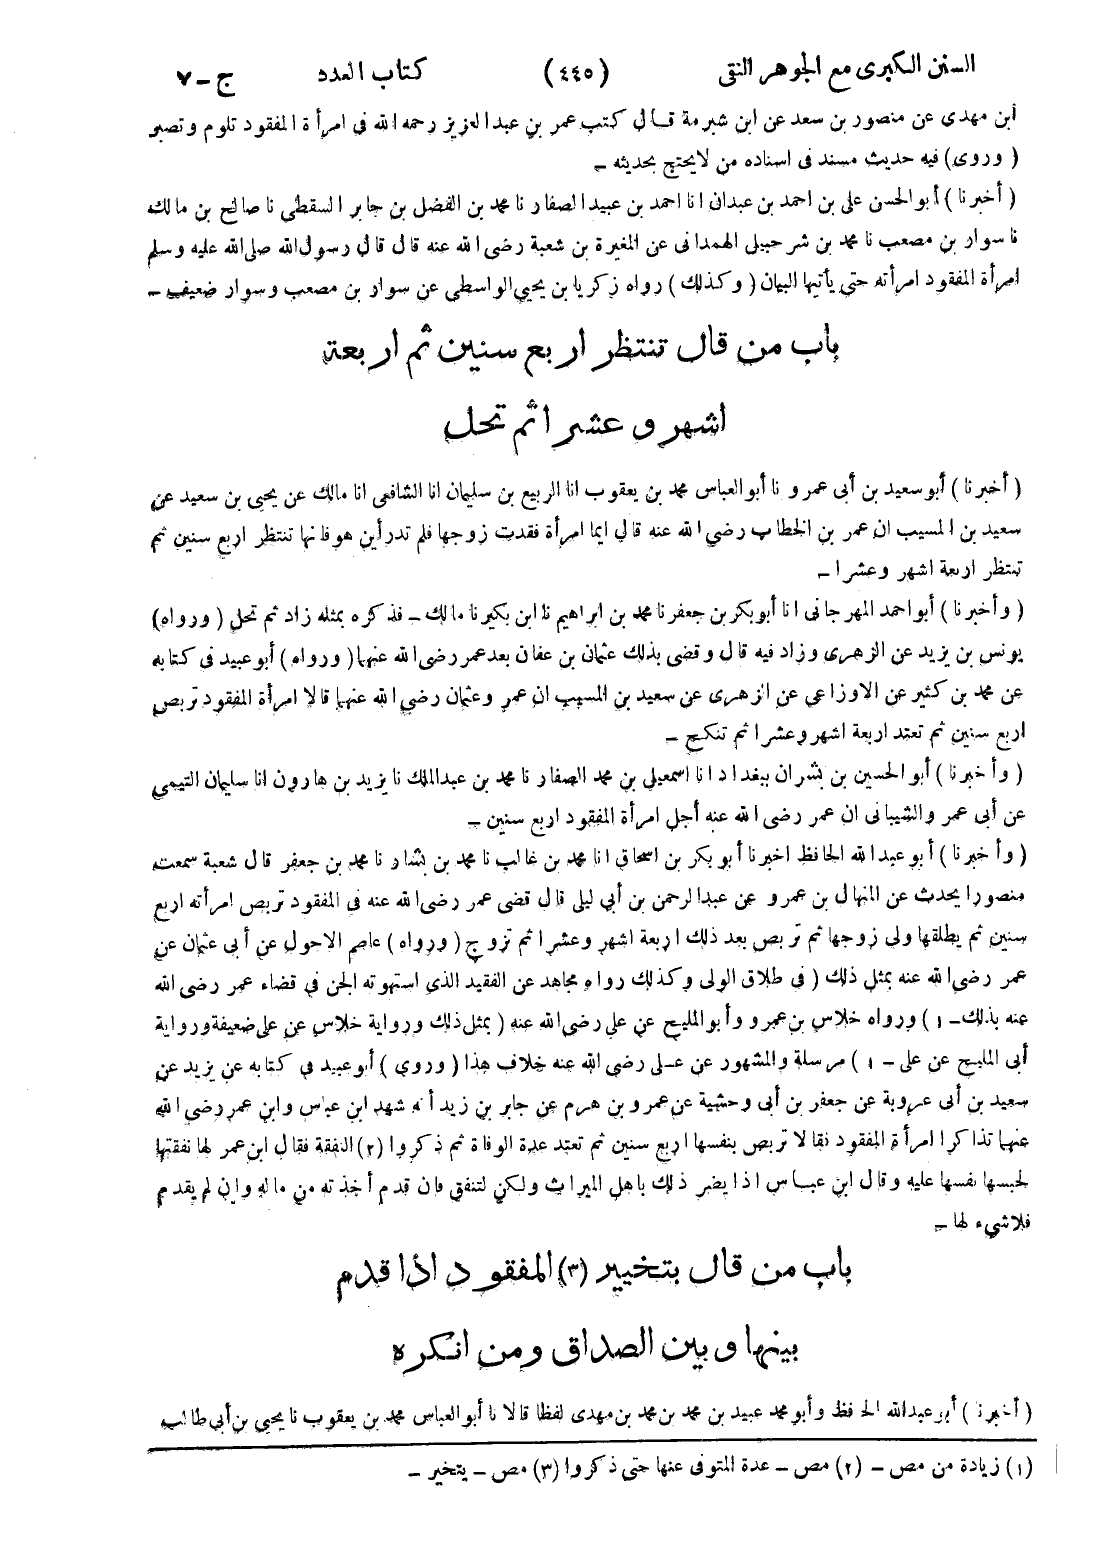 السنن الكبرى مع الجوهر النقى (٤٤٥) كتاب العدد ج-٧
ابن مهدى عن منصور بن سعد عن ابن شبرمة قال كتب عمر بن عبدالعزيز رحمه الله فى امرأة المفقود تلوم وتصبر
( وروى) فيه حديث مسند فى اسناده من لايحتج بحديثه -
( أخبرنا ) أبوالحسن على بن احمد بن عبدان انا احمد بن عبيدالصفار نا محمد بن الفضل بن جابر السقطى نا صالح بن مالك
نا سوار بن مصعب نا محمد بن شرحبيل الهمدانى عن المغيرة بن شعبة رضى الله عنه قال قال رسول الله صلى الله عليه وسلم
امرأة المفقود امرأته حتى يأتيها البيان ( وكذلك ) رواه زكريا بن يحيى الواسطى عن سوار بن مصعب وسوار ضعيف -
باب من قال تنتظر اربع سنين ثم اربعة
اشهر و عشرا ثم تحل
( أخبرنا ) أبوسعيد بن أبى عمرو نا أبوالعباس محمد بن يعقوب انا الربيع بن سليمان انا الشافعى انا مالك عن يحيى بن سعيد عن
سعيد بن المسيب ان عمر بن الخطاب رضي الله عنه قال ايما امرأة فقدت زوجها فلم تدر أين هو فانها تنتظر اربع سنين ثم
تنتظر اربعة اشهر وعشرا -
( وأخبرنا ) أبواحمد المهرجانى انا أبوبكر بن جعفر نا محمد بن ابراهيم نا ابن بكير نا مالك - فذكره بمثله زاد ثم تحل ( ورواه)
يونس بن يزيد عن الزهرى وزاد فيه قال وقضى بذلك عثمان بن عفان بعد عمر رضى الله عنهما ( ورواه ) أبو عبيد فى كتابه
عن محمد بن كثير عن الاوزاعى عن الزهرى عن سعيد بن المسيب ان عمر وعثمان رضي الله عنهما قالا امرأة المفقود تربص
اربع سنين ثم تعتد اربعة اشهر وعشرا ثم تنكح -
( وأخبرنا ) أبو الحسين بن بشران ببغداد انا اسمعيل بن محمد الصفار نا محمد بن عبدالملك نا يزيد بن هارون انا سليمان التيمى
عن أبى عمرو الشيبانى ان عمر رضى الله عنه أجل امرأة المفقود اربع سنين -
( وأخبرنا ) أبو عبدالله الحافظ اخبرنا أبوبكر بن اسحاق انا محمد بن غالب نا محمد بن بشار نا محمد بن جعفر قال شعبة سمعت
منصورا يحدث عن المنهال بن عمرو عن عبدالرحمن بن أبي ليلى قال قضى عمر رضى الله عنه فى المفقود تربص امرأته اربع
سنين ثم يطلقها ولى زوجها ثم تربص بعد ذلك اربعة اشهر وعشرا ثم تزوج ( ورواه ) عاصم الاحول عن أبى عثمان عن
عمر رضى الله عنه بمثل ذلك ( فى طلاق الولى وكذلك رواه مجاهد عن الفقيد الذى استهوته الجن فى قضاء عمر رضى الله
عنه بذلك - ١ ) ورواه خلاس بن عمرو وأبو المليح عن على رضى الله عنه ( بمثل ذلك ورواية خلاس عن على ضعيفة ورواية
أبى المليح عن على - ١ ) مرسلة والمشهور عن على رضى الله عنه خلاف هذا ( وروى ) أبوعبيد فى كتابه عن يزيد عن
سعيد بن أبى عروبة عن جعفر بن أبى وحشية عن عمرو بن هرم عن جابر بن زيد أنه شهد ابن عباس وابن عمر رضى الله
عنهما تذاكرا امرأة المفقود فقالا تربص بنفسها اربع سنين ثم تعتد عدة الوفاة ثم ذكروا (٢) النفقة فقال ابن عمر لها نفقتها
لحبسها نفسها عليه وقال ابن عباس اذا يضر ذلك باهل الميراث ولكن لتنفق فان قدم أخذته من ماله وان لم يقدم
فلاشىء لها -
باب من قال بتخيير (٣) المفقود اذا قدم
بينها و بين الصداق ومن انكره
( أخبرنا ) أبوعبدالله الحافظ وأبومحمد عبيد بن محمد بن محمد بن مهدى لفظا قالا نا أبوالعباس محمد بن يعقوب نا يحيى بن أبى طالب
(١) زيادة من مص - (٢) مص - عدة المتوفى عنها حتى ذكروا (٣) مص - يتخير -